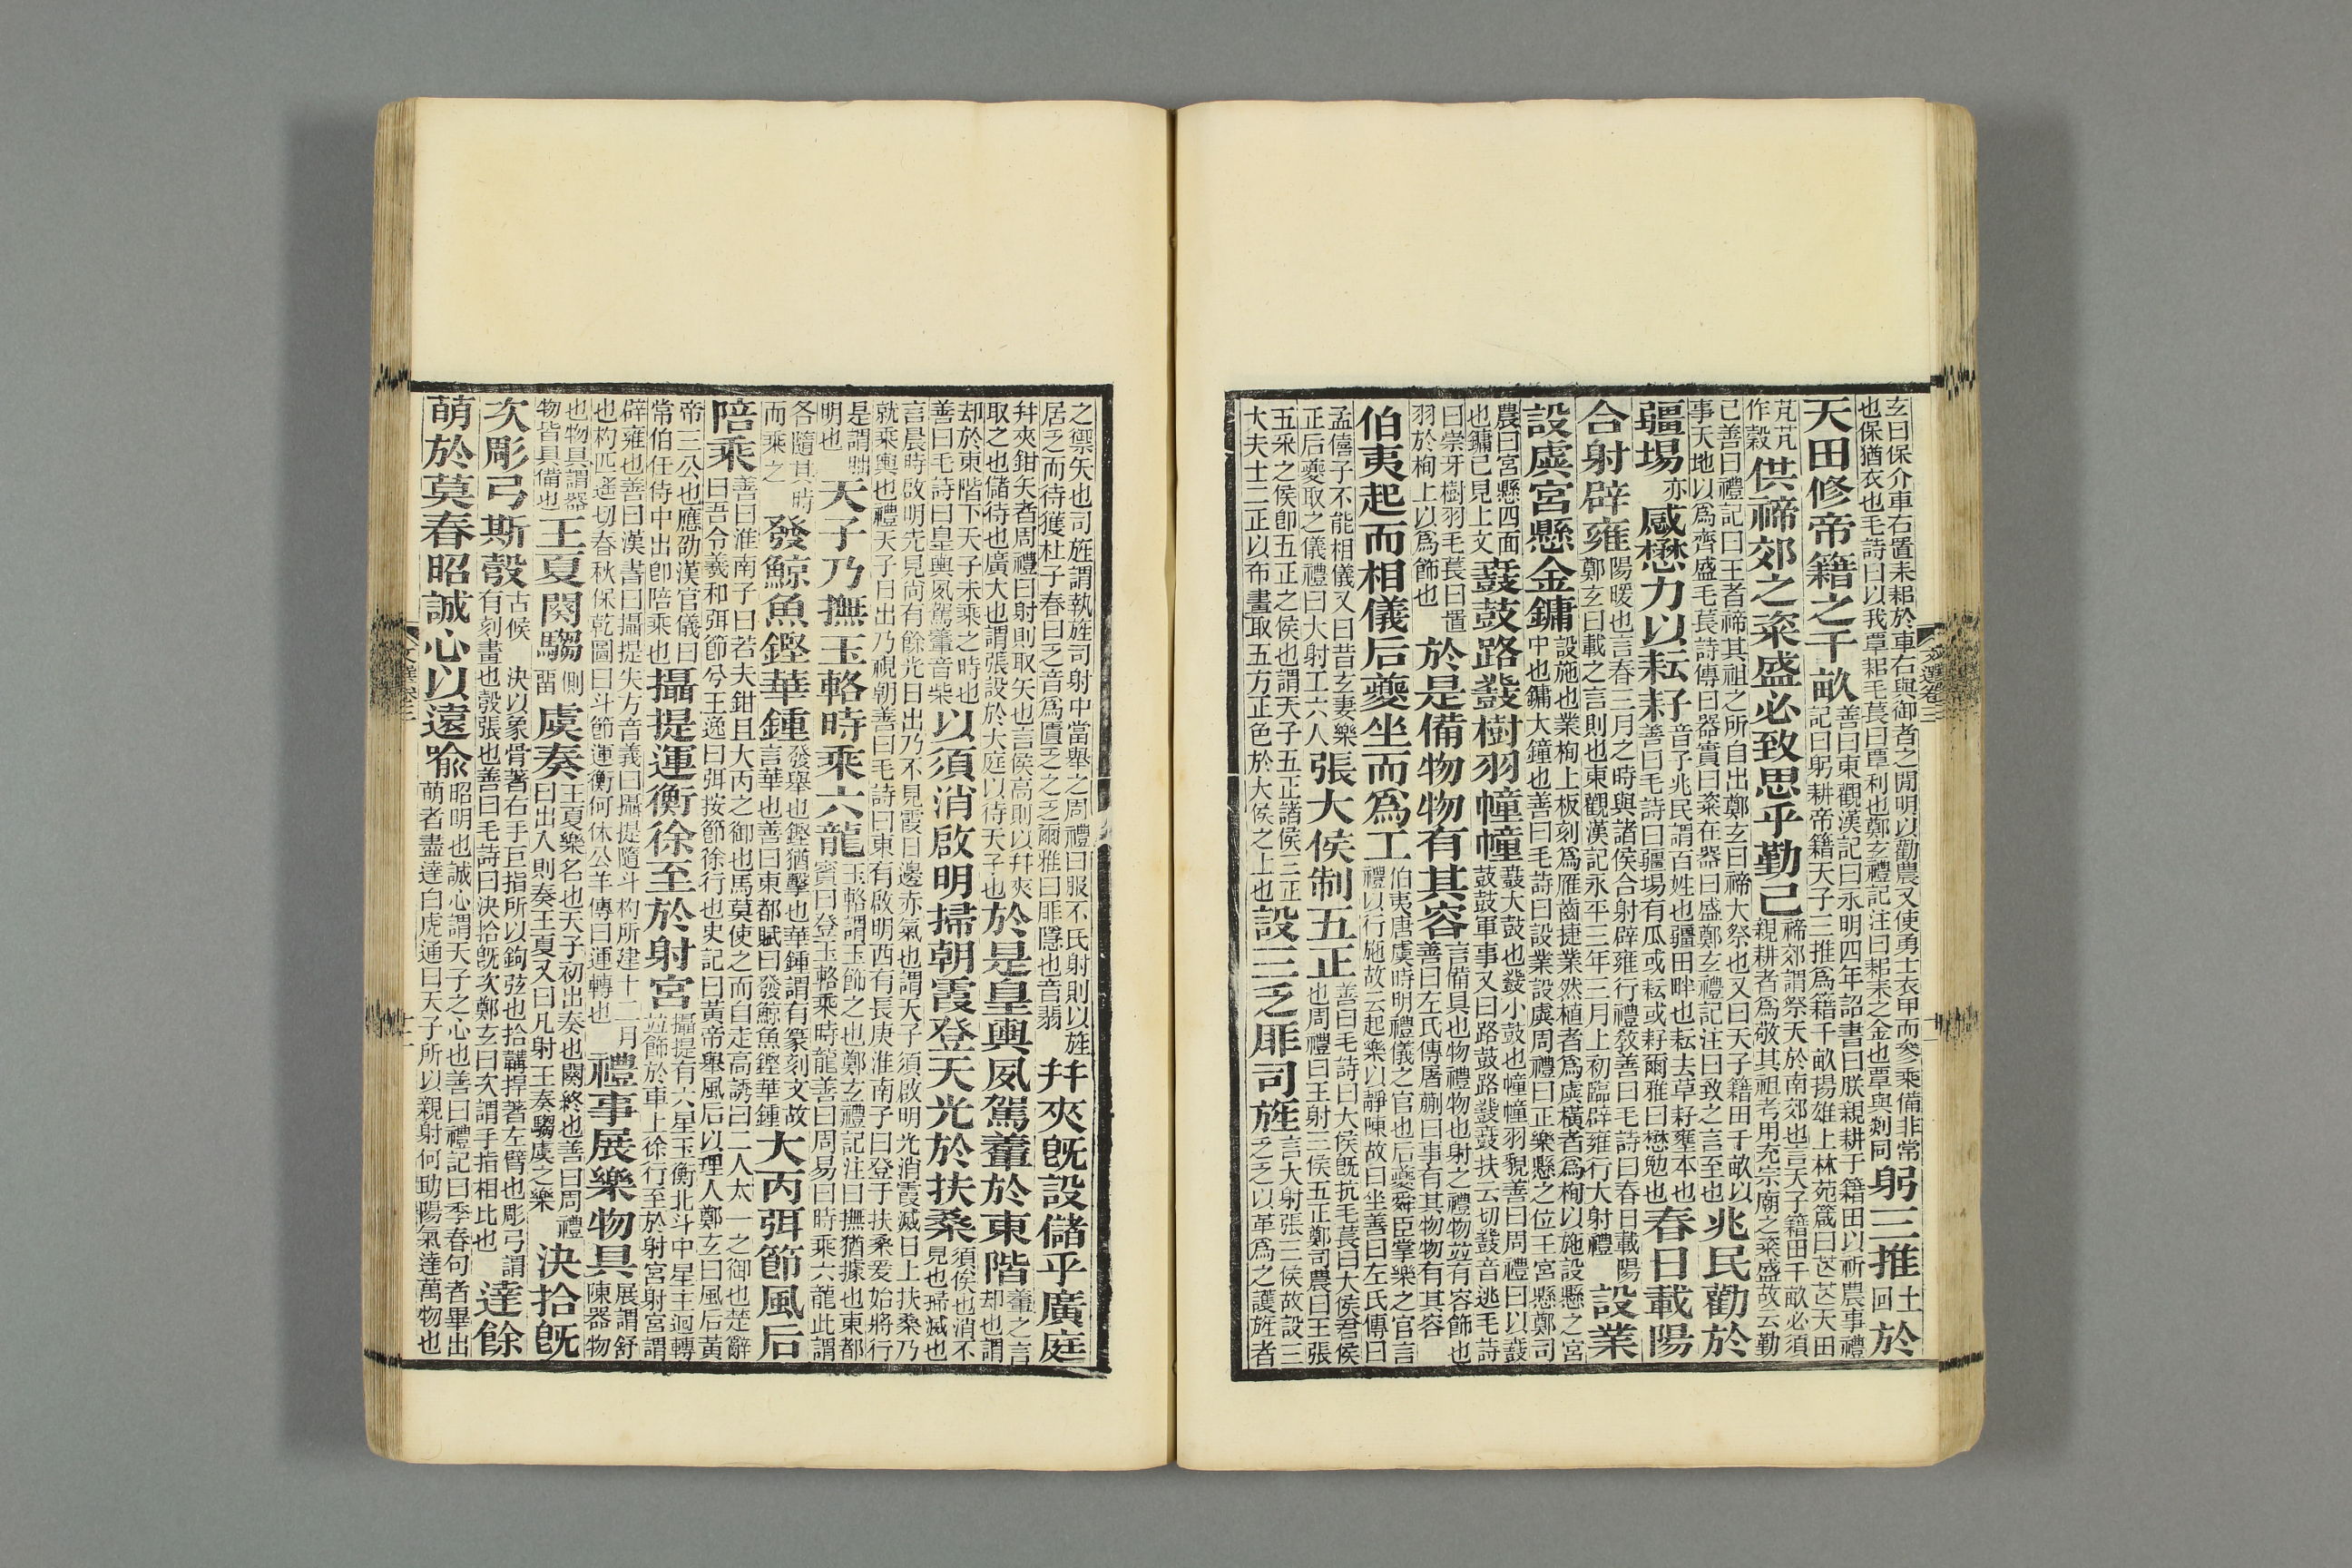 玄曰保介車右置耒耜於車右與御者之閒明以勸農又使勇士衣甲而參乘備非常
也保猶衣也毛詩曰以我覃耜毛萇曰覃利也鄭玄禮記注曰耜耒之金也覃與剡同
躬三推土回於
天田修帝籍之千畝
善曰東觀漢記曰永明四年詔書曰朕親耕于籍田以祈農事禮
記曰躬耕帝籍天子三推爲籍千畝揚雄上林苑箴曰芒芒天田
芃芃
作穀
供禘郊之粢盛必致思乎勤己
禘郊謂祭天於南郊也言天子籍田千畝必須
親耕者爲敬其祖考用充宗廟之粢盛故云勤
己善曰禮記曰王者禘其祖之所自出鄭玄曰禘大祭也又曰天子籍田千畝以
事天地以爲齊盛毛萇詩傳曰器實曰粢在器曰盛鄭玄禮記注曰致之言至也
兆民勸於
疆埸亦感懋力以耘耔
音子兆民謂百姓也疆田畔也耘去草耔壅本也
善曰毛詩曰疆埸有瓜或耘或耔爾雅曰懋勉也
春日載陽
合射辟雍
陽暖也言春三月之時與諸侯合射辟雍行禮敎善曰毛詩曰春日載陽
鄭玄曰載之言則也東觀漢記永平三年三月上初臨辟雍行大射禮
設業
設虡宮懸金鏞
設施也業栒上板刻爲雁齒捷業然植者爲虡橫者爲栒以施設懸之宮
中也鏞大鐘也善曰毛詩曰設業設虡周禮曰正樂懸之位王宮懸鄭司
農曰宮懸四面
也鏞已見上文
鼖鼓路鼗樹羽幢幢
鼖大鼓也鼗小鼓也幢幢羽貌善曰周禮曰以鼖
鼓鼓軍事又曰路鼓路鼗鼖扶云切鼗音逃毛詩
曰崇牙樹羽毛萇曰置
羽於栒上以爲飾也
於是備物物有其容
言備具也物禮物也射之禮物竝有容飾也
善曰左氏傳屠蒯曰事有其物物有其容
伯夷起而相儀后夔坐而爲工
伯夷唐虞時明禮儀之官也后夔舜臣掌樂之官言
禮以行施故云起樂以靜陳故曰坐善曰左氏傳曰
孟僖子不能相儀又曰昔玄妻樂
正后夔取之儀禮曰大射工六人
張大侯制五正
善曰毛詩曰大侯旣抗毛萇曰大侯君侯
也周禮曰王射三侯五正鄭司農曰王張
五采之侯卽五正之侯也謂天子五正諸侯三正
大夫士二正以布畫取五方正色於大侯之上也
設三乏厞司旌
言大射張三侯故設三
乏乏以革爲之護旌者
文選卷三
之禦矢也司旌謂執旌司射中當舉之周禮曰服不氏射則以旌
居乏而待獲杜子春曰乏音爲匱乏之乏爾雅曰厞隱也音翡
幷夾旣設儲乎廣庭
幷夾鉗矢者周禮曰射則取矢也言侯高則以幷夾
取之也儲待也廣大也謂張設於大庭以待天子也
於是皇輿夙駕輂於東階
輂之言
却也謂
却於東階下天子未乘之時也
善曰毛詩曰皇輿夙駕輂音柴
以須消啟明掃朝霞登天光於扶桑
須俟也消不
見也掃滅也
言晨時啟明先見尚有餘光日出乃不見霞日邊赤氣也謂天子須啟明光消霞滅日上扶桑乃
就乘輿也禮天子日出乃視朝善曰毛詩曰東有啟明西有長庚淮南子曰登于扶桑爰始將行
是謂朏
明也
天子乃撫玉輅時乘六龍
玉輅謂玉飾之也鄭玄禮記注曰撫猶據也東都
賓曰登玉輅乘時龍善曰周易曰時乘六龍此謂
各隨其時
而乘之
發鯨魚鏗華鍾
發舉也鏗猶擊也華鍾謂有篆刻文故
言華也善曰東都賦曰發鯨魚鏗華鍾
大丙弭節風后
陪乘
善曰淮南子曰若夫鉗且大丙之御也馬莫使之而自走高誘曰二人太一之御也楚辭
曰吾令羲和弭節兮王逸曰弭按節徐行也史記曰黃帝舉風后以理人鄭玄曰風后黃
帝三公也應劭漢官儀曰
常伯任侍中出卽陪乘也
攝提運衡徐至於射宮
攝提有六星玉衡北斗中星主迴轉
竝飾於車上徐行至於射宮射宮謂
辟雍也善曰漢書曰攝提失方音義曰攝提隨斗杓所建十二月
也杓匹遙切春秋保乾圖曰斗節運衡何休公羊傳曰運轉也
禮事展樂物具
展謂舒
陳器物
也物具謂器
物皆具備也
王夏闋騶側畱虞奏
王夏樂名也天子初出奏也闋終也善曰周禮
曰出入則奏王夏又曰凡射王奏騶虞之樂
決拾旣
次彫弓斯彀
古候
有刻畫也彀張也善曰毛詩曰決拾旣次鄭玄曰次謂手指相比也
決以象骨著右手巨指所以鉤弦也拾韝捍著左臂也彫弓謂
達餘
萌於莫春昭誠心以遠喩
昭明也誠心謂天子之心也善曰禮記曰季春句者畢出
萌者盡達白虎通曰天子所以親射何助陽氣達萬物也
文選卷三
十二